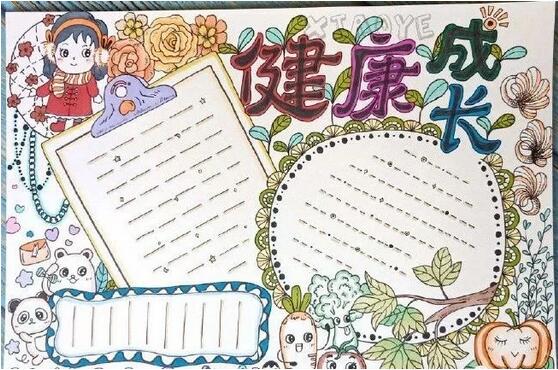 XIAOYE
健康
成长